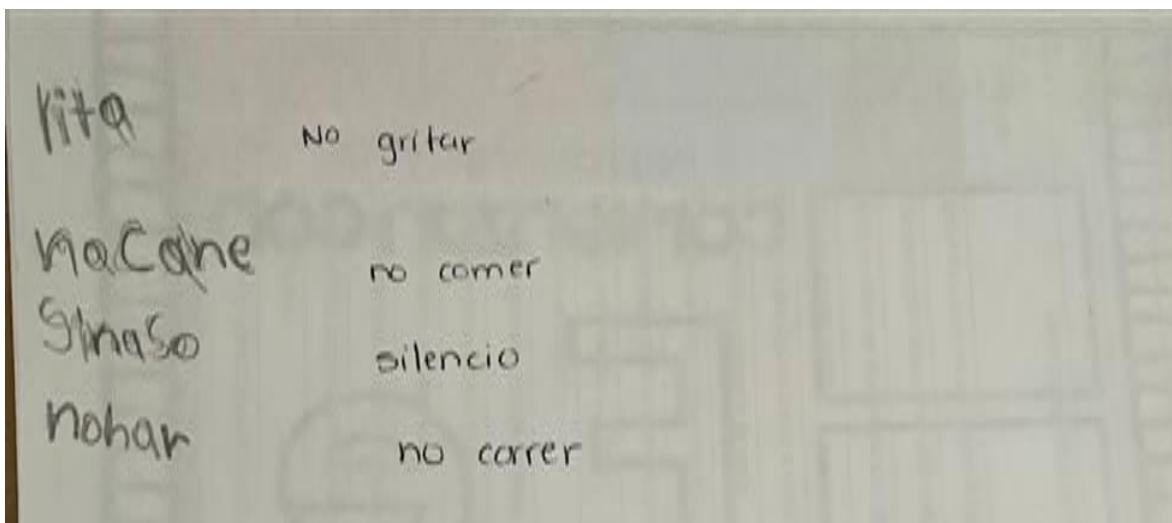 rita No gritar
nacane no comer
sinaso silencio
nohar no correr